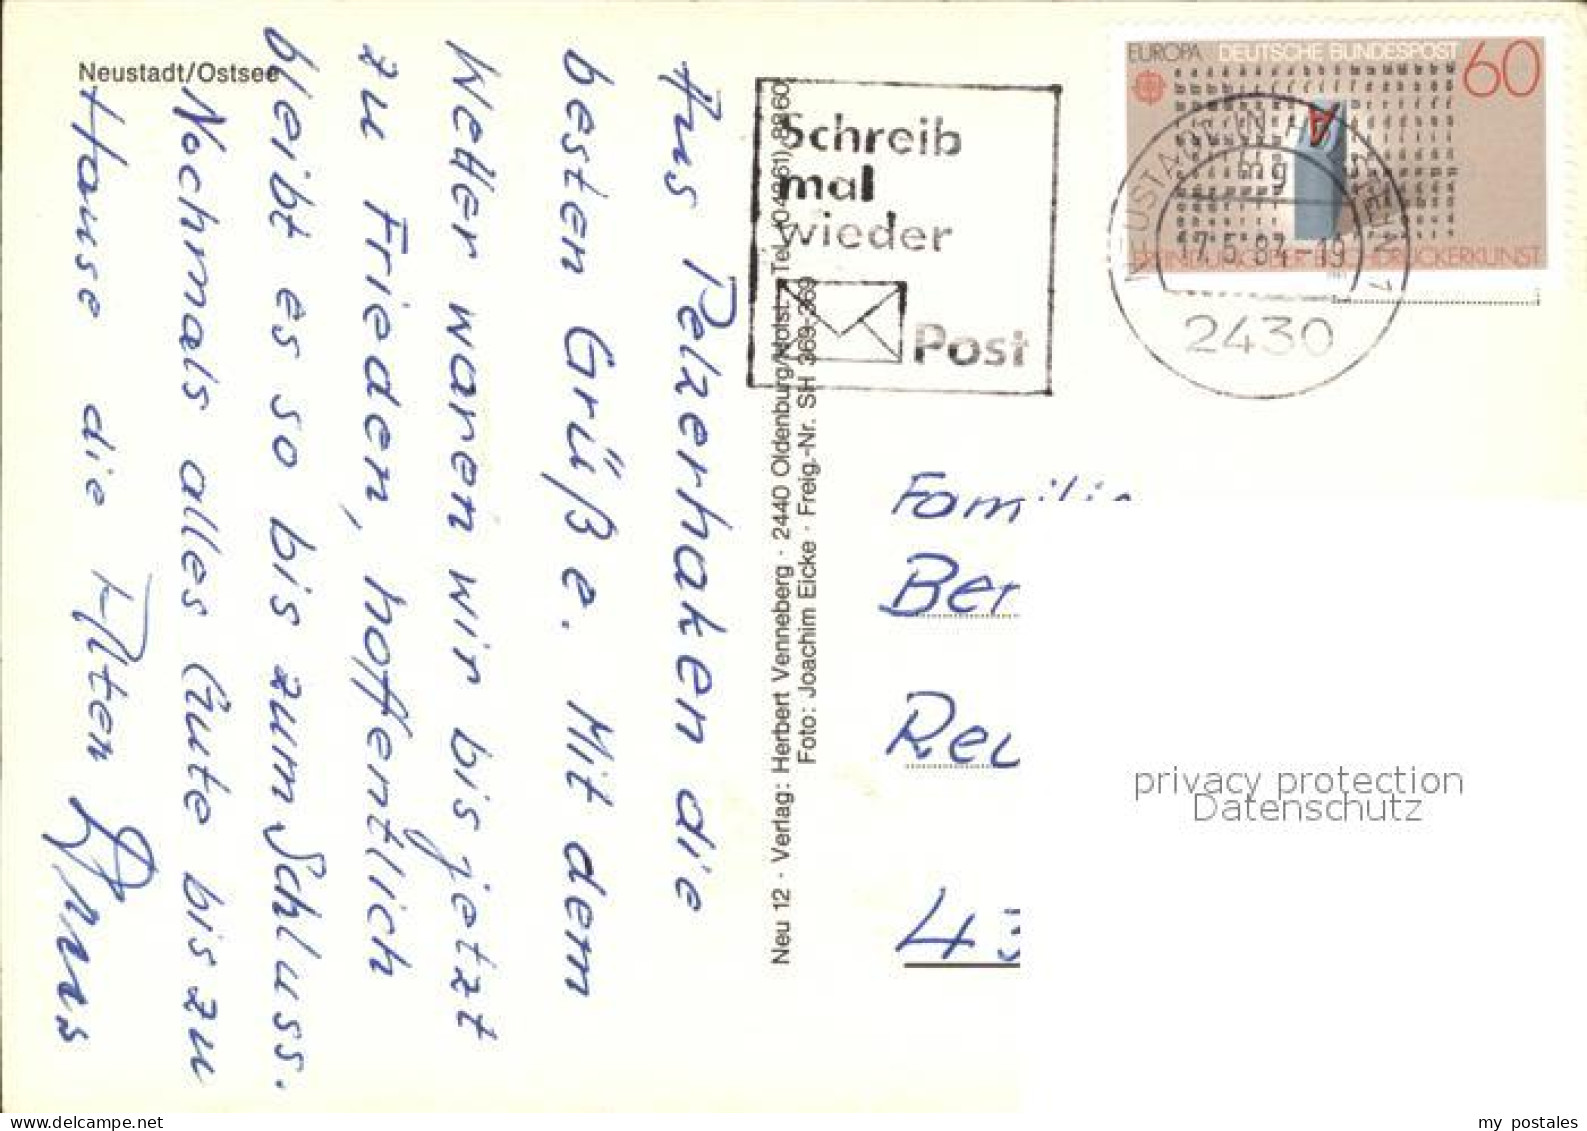 Neustadt/Ostsee
Aus Pelzerhaken die
besten Grüße. Mit dem
Wetter waren wir bis jetzt
zu Frieden, hoffentlich
bleibt es so bis zum Schluss.
Nochmals alles Gute bis zu
Hause die Alten
Neu 12 · Verlag: Herbert Venneberg · 2440 Oldenburg/Holst. · Tel. (04361) 8260
Foto: Joachim Eicke · Freig.-Nr. SH 369-369
Schreib
mal
wieder
Post
EUROPA DEUTSCHE BUNDESPOST 60
ERFINDUNG DER BUCHDRUCKERKUNST
NEUSTADT IN HOLSTEIN 1
17.5.84-19
2430
Familie
Ber
Reu
43
privacy protection
Datenschutz
www.delcampe.net
my postales